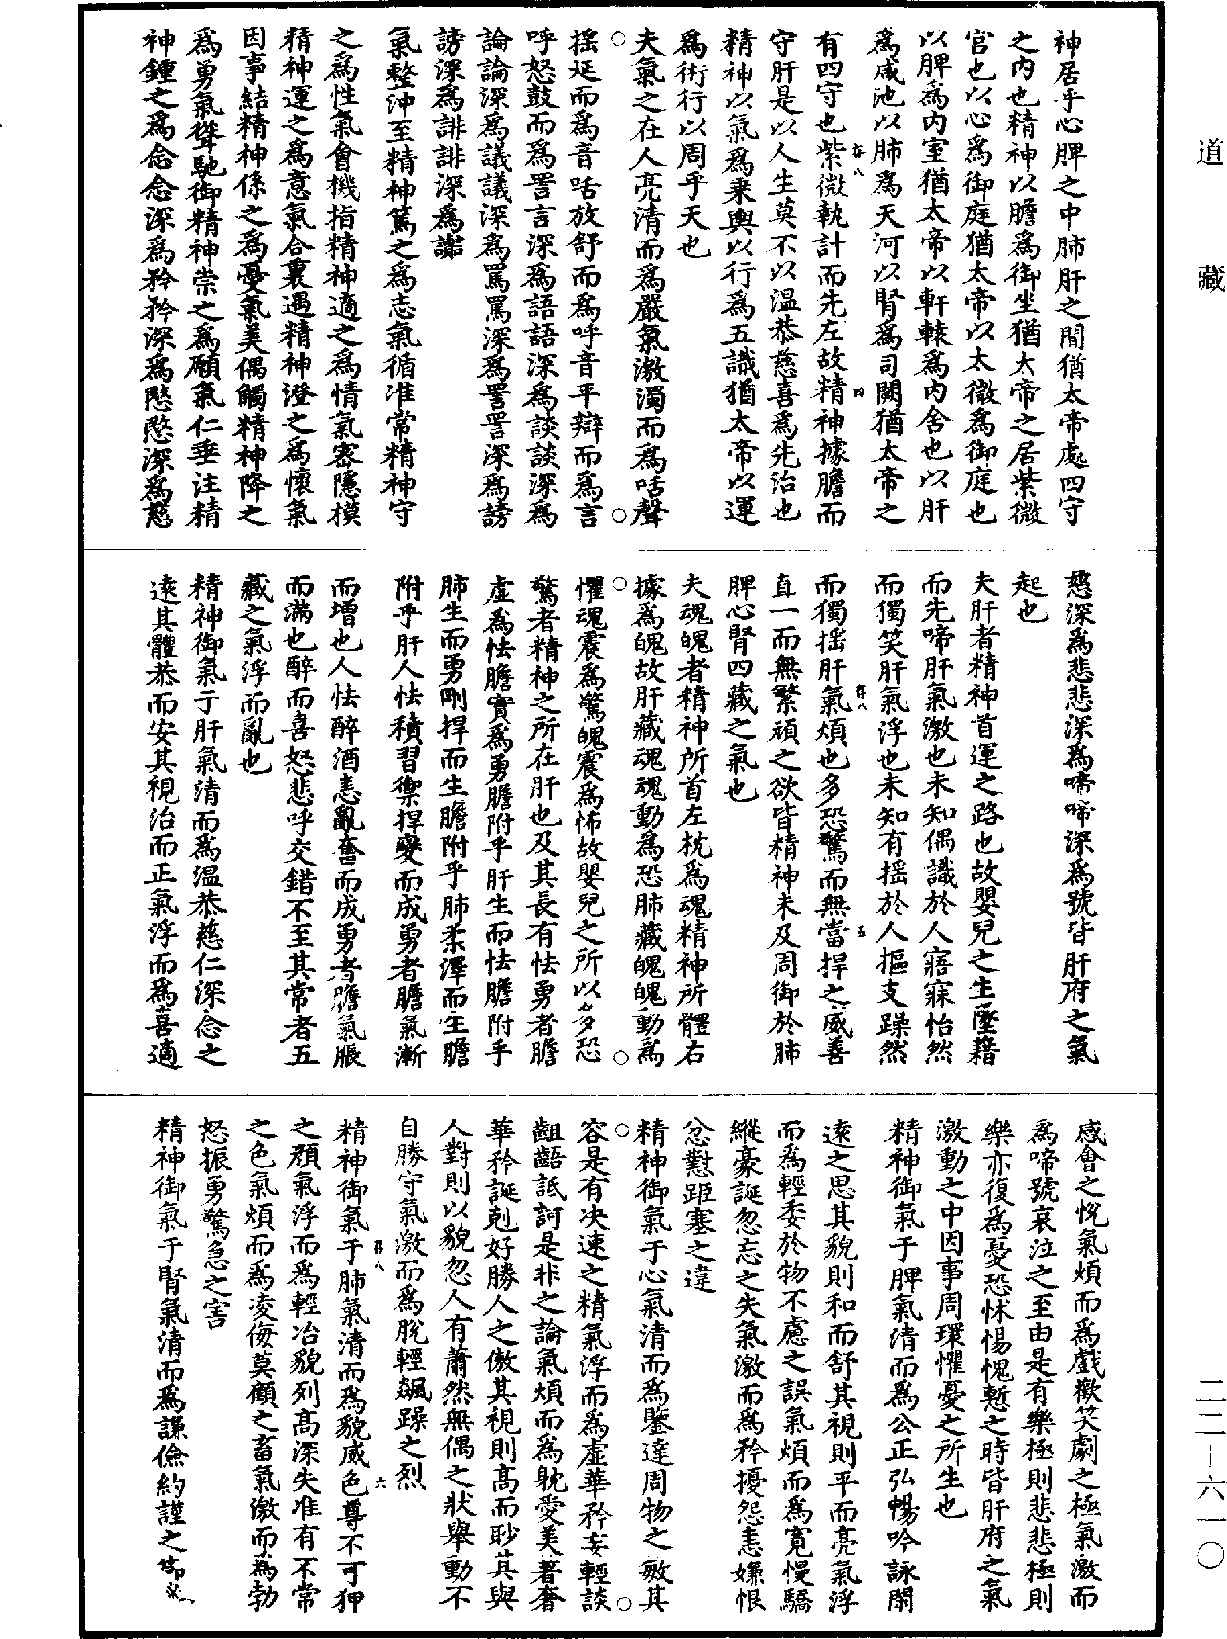 道藏
神居乎心脾之中肺肝之間猶太帝處四守
之內也精神以膽為御坐猶太帝之居紫微
官也以心為御庭猶太帝以太微為御庭也
以脾為內室猶太帝以軒轅為內舍也以肝
為咸池以肺為天河以腎為司闕猶太帝之
有四守也紫微執計而先左故精神據膽而
守肝是以人生莫不以溫恭慈喜為先治也
精神以氣為乘輿以行為五識猶太帝以運
為術行以周乎天也
夫氣之在人亮清而為嚴氣激濁而為咶聲
搖延而為音咶放舒而為呼音平辯而為言
呼怒鼓而為詈言深為語語深為談談深為
論論深為議議深為罵罵深為詈詈深為謗
謗深為誹誹深為
氣整沖至精神篤之為志氣循准常精神守
之為性氣會機指精神適之為情氣密隱模
精神運之為意氣合裏遇精神澄之為懷氣
因事結精神係之為憂氣美偶觸精神降之
為勇氣聳馳御精神崇之為願氣仁垂注精
神鍾之為念念深為矜矜深為愍愍深為慈
慈深為悲悲深為啼啼深為號皆肝府之氣
起也
夫肝者精神首運之路也故嬰兒之生墮藉
而先啼肝氣激也未知偶識於人寤寐怡然
而獨笑肝氣浮也未知有搖於人摳支躁然
而獨搖肝氣煩也多恐驚而無當捍之威善
直一而無繁頑之欲皆精神未及周御於肺
脾心腎四藏之氣也
夫魂魄者精神所首左枕為魂精神所體右
據為魄故肝藏魂魂動為恐肺藏魄魄動為
懼魂震為驚魄震為怖故嬰兒之所以多恐
驚者精神之所在肝也及其長有怯勇者膽
虛為怯膽實為勇膽附乎肝生而怯膽附乎
肺生而勇剛捍而生膽附乎肺柔澤而生膽
附乎肝人怯積習禦捍變而成勇者膽氣漸
而增也人怯醉酒恚亂奮而成勇者膽氣脹
而滿也醉而喜怒悲呼交錯不至其常者五
藏之氣浮而亂也
精神御氣于肝氣清而為溫恭慈仁深念之
遠其體恭而安其視治而正氣浮而為喜適
感會之悅氣煩而為戲歡笑劇之極氣激而
為啼號哀泣之至由是有樂極則悲悲極則
樂亦復為憂恐怵惕愧慙之時皆肝府之氣
激動之中因事周環懼憂之所生也
精神御氣于脾氣清而為公正弘暢吟詠閑
遠之思其貌則和而舒其視則平而亮氣浮
而為輕委於物不慮之誤氣煩而為寬慢驕
縱豪誕忽忘之失氣激而為矜擾怨恚嫌恨
忿懟距塞之違
精神御氣于心氣清而為鑒達周物之敏其
容是有決速之精氣浮而為虛華矜妄輕談
齟齬詆訶是非之論氣煩而為躭愛美著奢
華矜誕剋好勝人之傲其視則高而眇其與
人對則以貌忽人有蕭然無偶之狀舉動不
自勝守氣激而為脫輕飄躁之烈
精神御氣于肺氣清而為貌威色尊不可狎
之顏氣浮而為輕冶貌列高深失准有不常
之色氣煩而為凌侮莫顧之畜氣激而為勃
怒振勇驚急之害
精神御氣于腎氣清而為謙儉約謹之
二二–六一〇